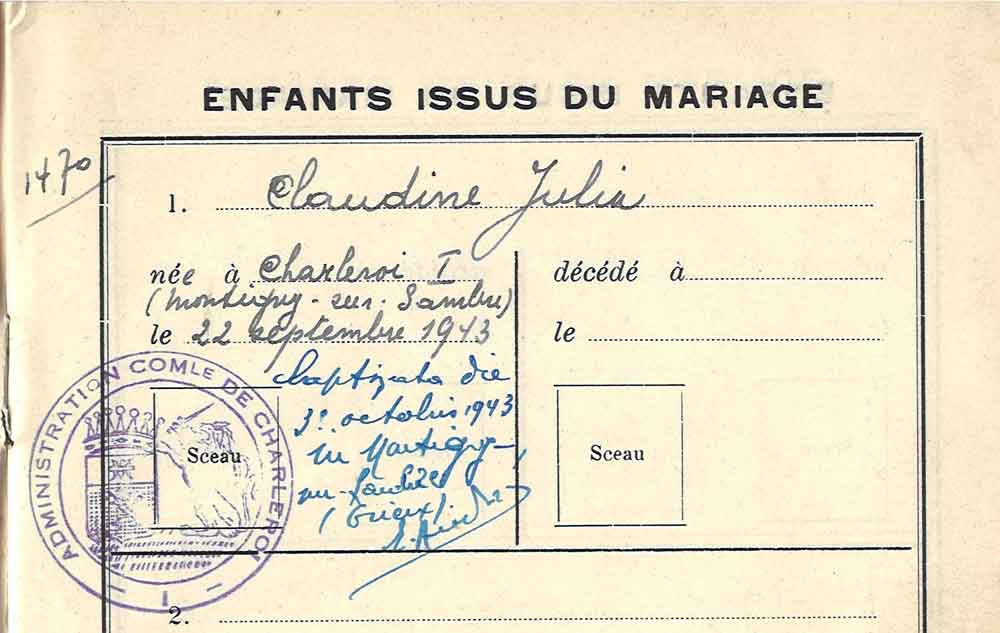 ENFANTS ISSUS DU MARIAGE
1470
1. Claudine Julia
née à Charleroi I
(Montigny-sur-Sambre)
le 22 septembre 1943
décédé à
le
baptizata die
3º octobris 1943
in Montigny-
sur-Sambre
Sceau
Sceau
ADMINISTRATION COMLE DE CHARLEROI
I
2.